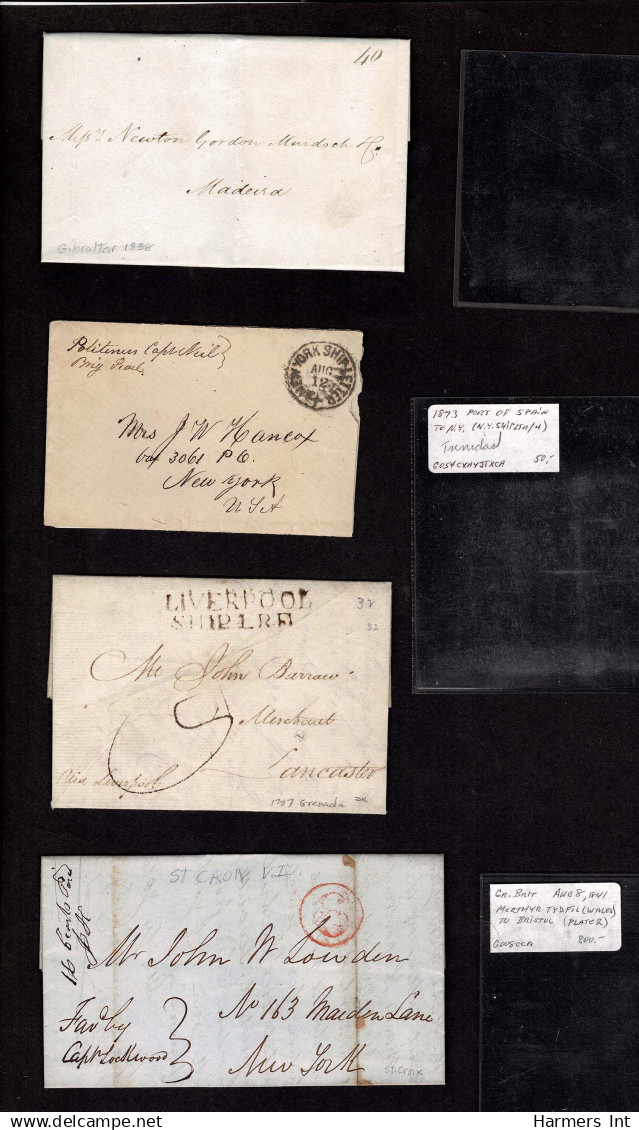 40
Mess.rs Newton Gordon Murdoch & Co.
Madeira
Gibraltar 1838
Brig Pearl
NEW YORK SHIP LETTER
AUG
12
Mrs J W Hancox
box 3061 P O.
New York
U S A
1873 PORT OF SPAIN
TO N.Y. (N.Y. SHIP
Trinidad
50,-
LIVERPOOL
SHIP LRE
32
52
Mr John Barrow
Merchant
Lancaster
Via Liverpool
1787 Grenada
ST CROIX V.I.
Mr John W Lowden
No 163 Maiden Lane
New York
Favd by
Capt Lockwood
3
St. Croix
GR. BRIT AUG 8, 1841
MERTHYR TYDFIL (WALES)
TO BRISTOL (PLATE 2)
800.-
Harmers Int